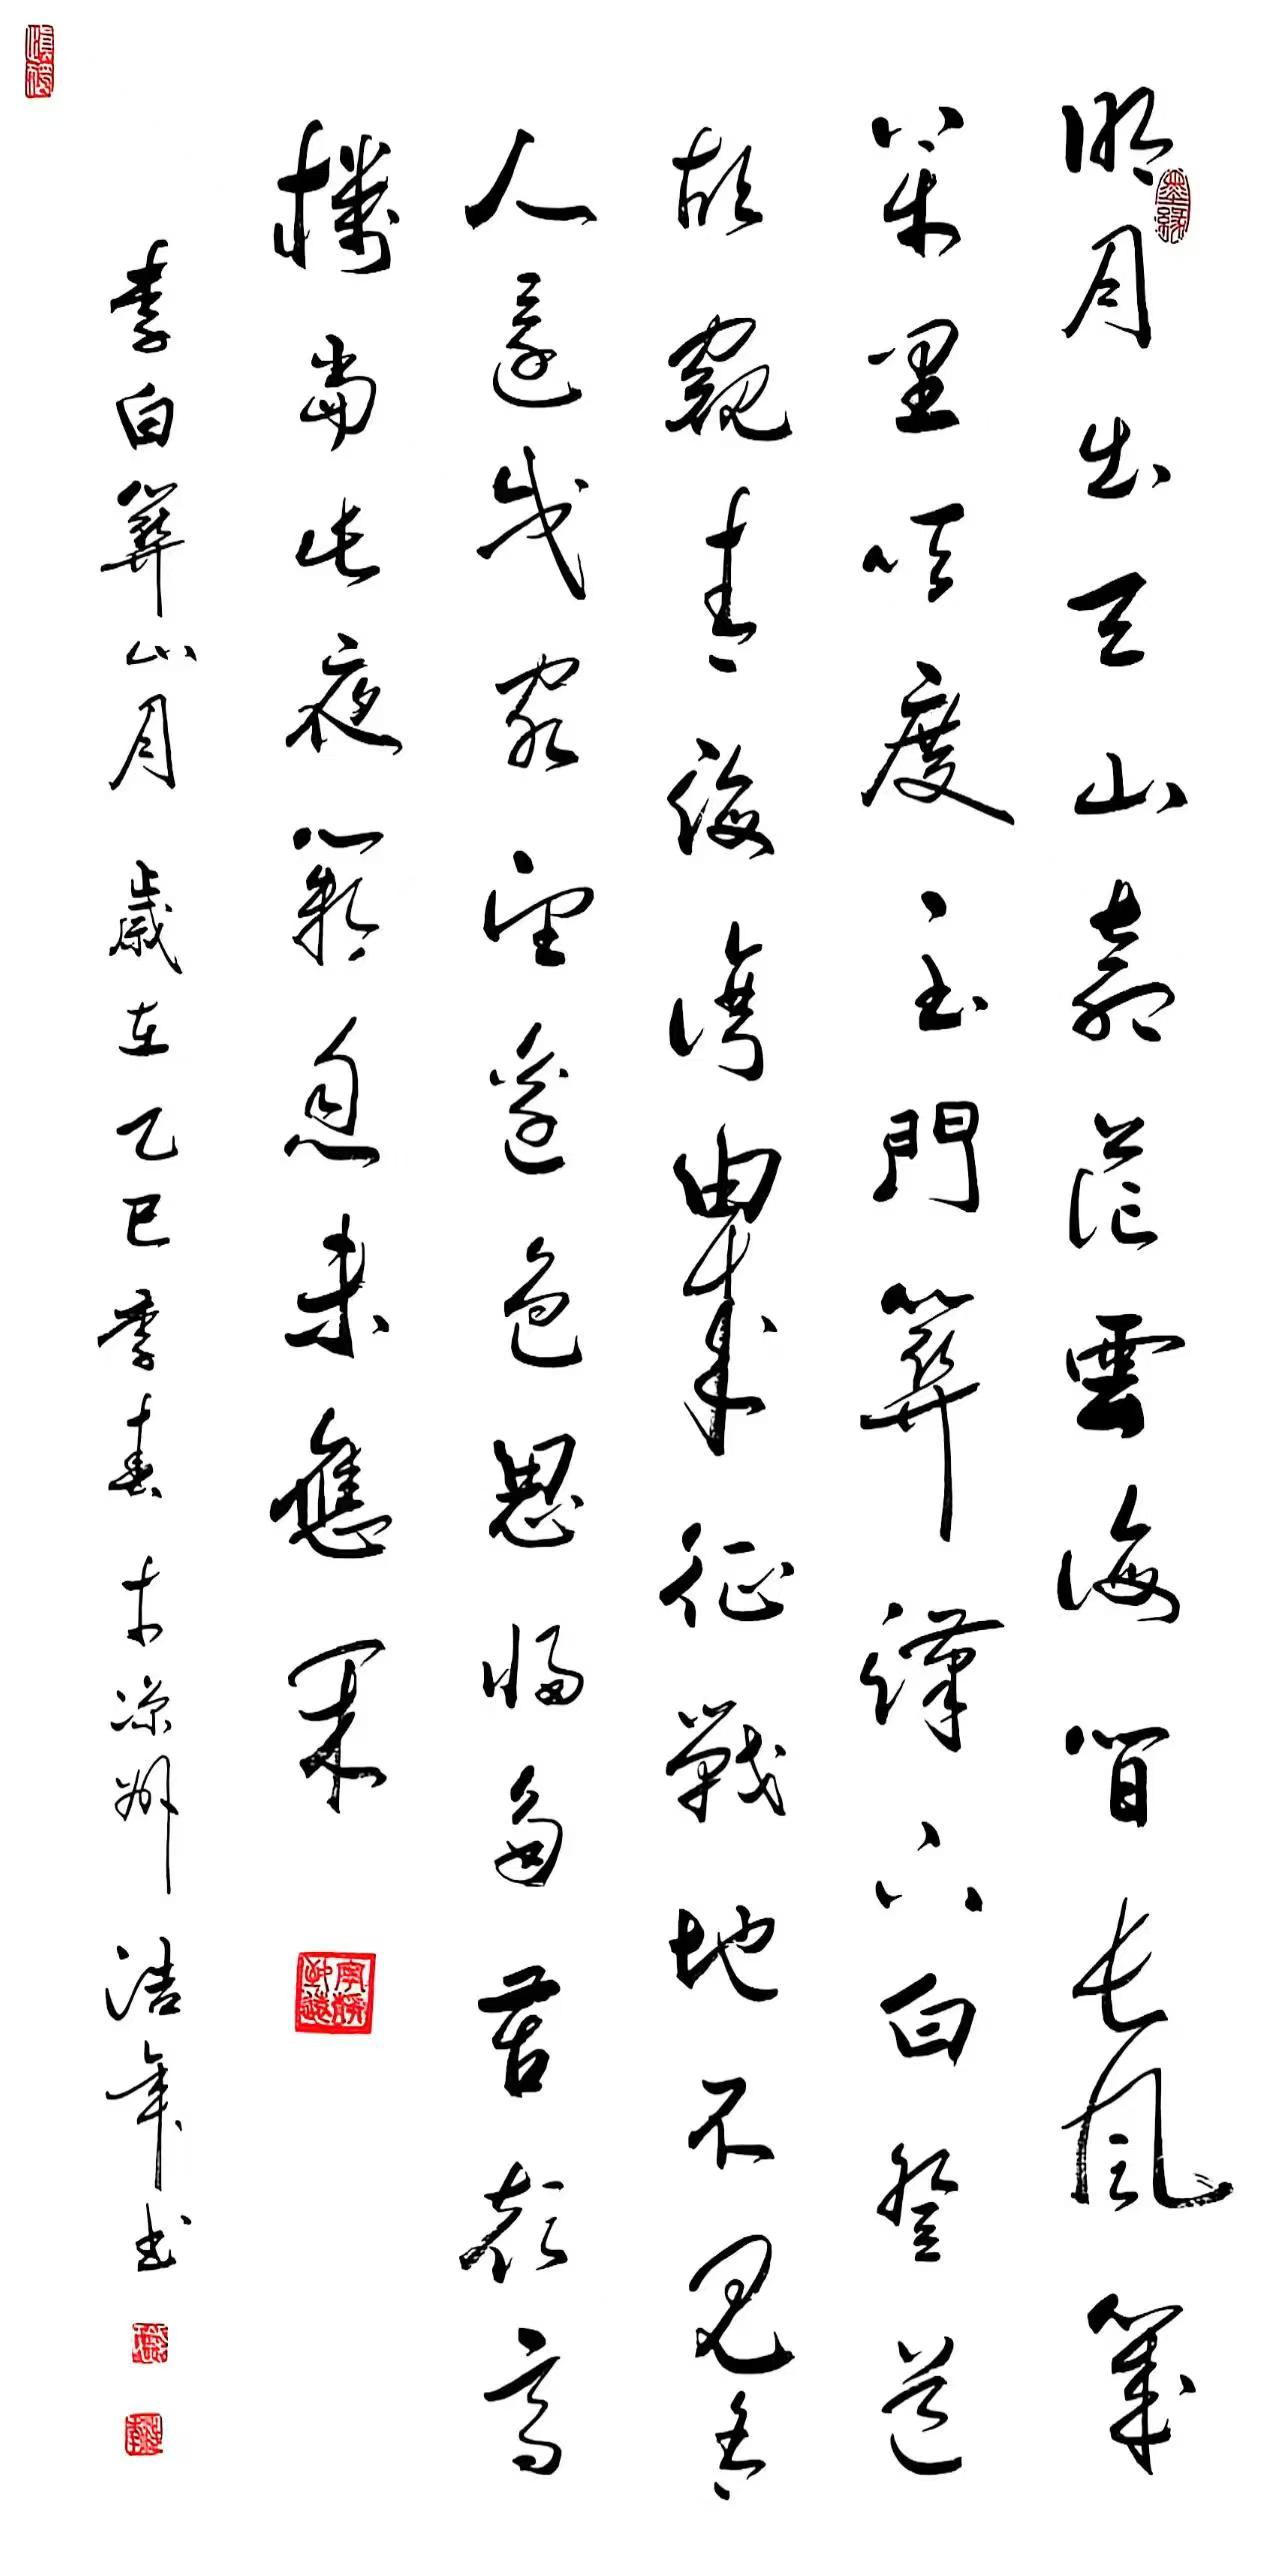 墨緣
明月出天山蒼茫雲海間長風幾
萬里吹度玉門關漢下白登道
胡窺青海灣由來征戰地不見有
人還戍客望邊色思歸多苦顏高
樓當此夜嘆息未應閑
寧靜致遠
李白關山月 歲在乙巳季春 於涼州 浩年書